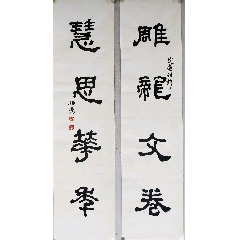 雕龍文卷
慧思華季